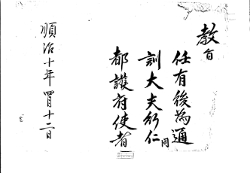 教旨
任有後為通
訓大夫行仁同
都護府使者
順治十年四月十二日